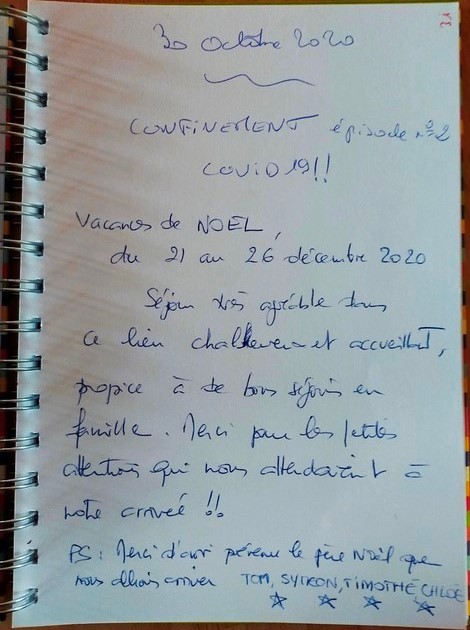 31
30 Octobre 2020
CONFINEMENT épisode n°2
COVID 19!!
Vacances de NOEL,
du 21 au 26 décembre 2020
Séjour très agréable dans
ce lieu chaleureux et accueillant,
propice à de bons séjours en
famille. Merci pour les petites
attentions qui nous attendaient à
notre arrivée !!
PS : Merci d'avoir prévenu le père Noël que
nous allions arriver TOM, SYMON, TIMOTHÉ, CHLOÉ